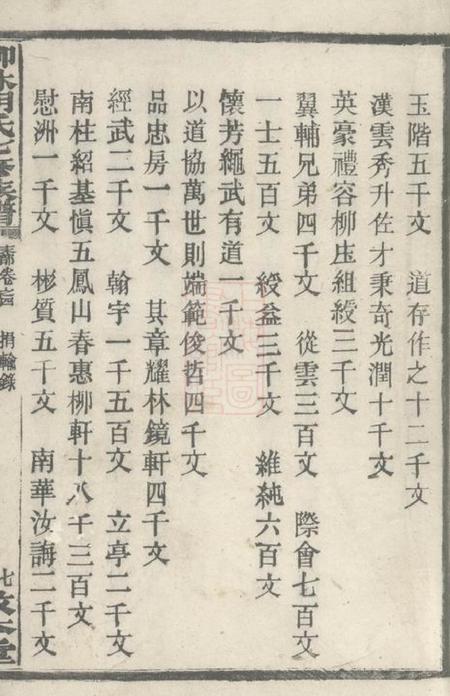 玉階五千文　道存作之十二千文
漢雲秀升佐才秉奇光潤十千文
英豪禮容柳庄組綬三千文
翼輔兄弟四千文　從雲三百文　際會七百文
一士五百文　綬益三千文　維純六百文
懷芳繩武有道一千文
以道協萬世則端範俊哲四千文
品忠房一千文　其章耀林鏡軒四千文
經武二千文　翰宇一千五百文　立亭二千文
南柱紹基愼五鳳山春惠柳軒十八千三百文
慰洲一千文　彬質五千文　南華汝誨二千文
氏七修族譜
卷 捐輸錄
七
敦本堂